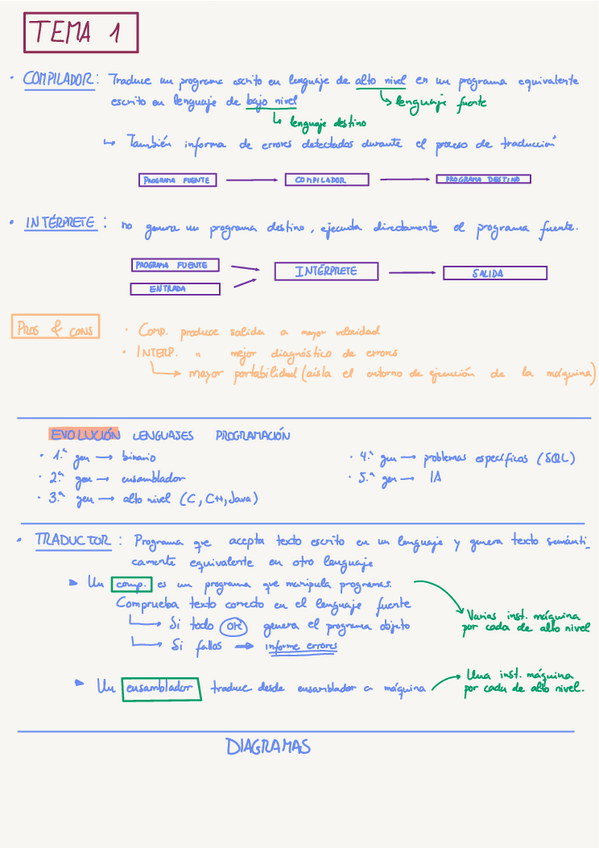 TEMA 1
• COMPILADOR: Traduce un programa escrito en lenguaje de alto nivel en un programa equivalente
escrito en lenguaje de bajo nivel
↳ lenguaje fuente
↳ lenguaje destino
↳ También informa de errores detectados durante el proceso de traducción
PROGRAMA FUENTE → COMPILADOR → PROGRAMA DESTINO
• INTÉRPRETE: no genera un programa destino, ejecuta directamente el programa fuente.
PROGRAMA FUENTE
ENTRADA
→ INTÉRPRETE → SALIDA
PROS & CONS
• Comp. produce salida a mayor velocidad
• INTERP. " mejor diagnóstico de errores
↳ mayor portabilidad (aísla el entorno de ejecución de la máquina)
EVOLUCIÓN LENGUAJES PROGRAMACIÓN
• 1.ª gen → binario
• 2.ª gen → ensamblador
• 3.ª gen → alto nivel (C, C++, Java)
• 4.ª gen → problemas específicos (SQL)
• 5.ª gen → IA
• TRADUCTOR: Programa que acepta texto escrito en un lenguaje y genera texto semánti-
camente equivalente en otro lenguaje
► Un comp. es un programa que manipula programas.
Comprueba texto correcto en el lenguaje fuente
↳ Si todo OK genera el programa objeto
↳ Si fallos ⇒ informe errores
Varias inst. máquina
por cada de alto nivel
► Un ensamblador traduce desde ensamblador a máquina
Una inst. máquina
por cada de alto nivel.
DIAGRAMAS